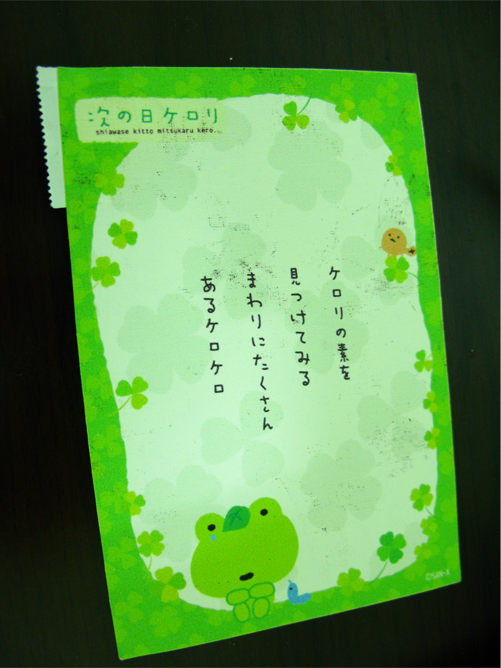 次の日ケロリ
shiawase kitto mitsukaru kero..
ケロリの素を
見つけてみる
まわりにたくさん
あるケロケロ
©SAN-X